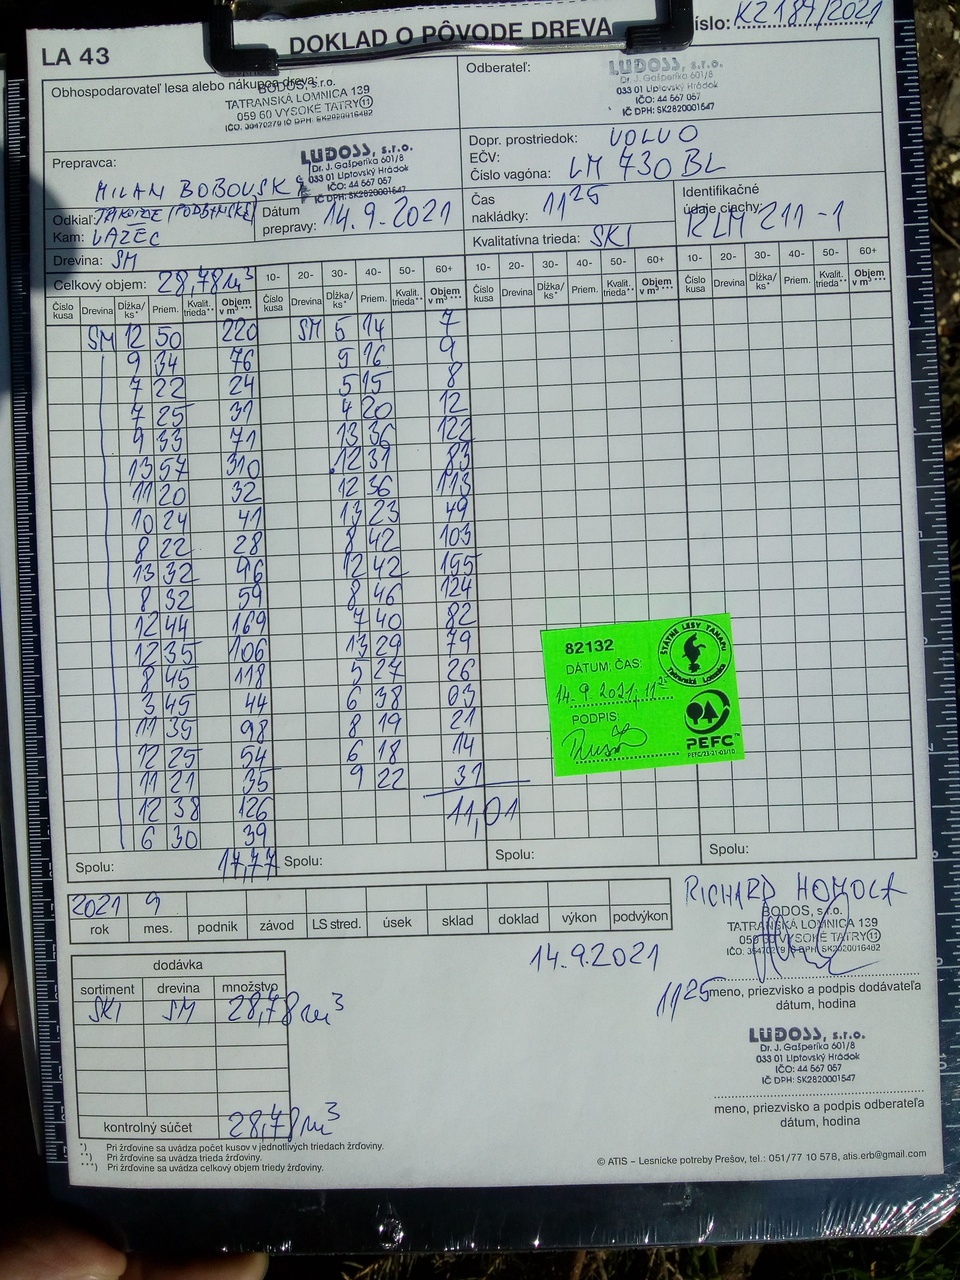 LA 43
DOKLAD O PÔVODE DREVA
číslo: KZ187/2021
Obhospodarovateľ lesa alebo nákupca dreva:
BODOS, s.r.o.
TATRANSKÁ LOMNICA 139
059 60 VYSOKÉ TATRY 11
Odberateľ:
LUDOSS, s.r.o.
Dr. J. Gašperíka 601/8
033 01 Liptovský Hrádok
IČO: 44 567 057
IČ DPH: SK2820001547
Prepravca:
MILAN BOBOVSKÝ
LUDOSS, s.r.o.
Dr. J. Gašperíka 601/8
033 01 Liptovský Hrádok
IČO: 44 567 057
IČ DPH: SK2820001547
Dopr. prostriedok: VOLVO
EČV:
Číslo vagóna: LM 730 BL
Odkiaľ:
Kam: LAZEC
Dátum prepravy: 14.9.2021
Čas nakládky: 11 25
Kvalitatívna trieda: SKI
Identifikačné údaje ciachy: KLM 211-1
Drevina: SM
Celkový objem: 28,78 m3
10- 20- 30- 40- 50- 60+ 10- 20- 30- 40- 50- 60+ 10- 20- 30- 40- 50- 60+
Číslo kusa Drevina Dĺžka/ks* Priem. Kvalit. trieda** Objem v m3*** Číslo kusa Drevina Dĺžka/ks* Priem. Kvalit. trieda** Objem v m3*** Číslo kusa Drevina Dĺžka/ks* Priem. Kvalit. trieda** Objem v m3*** Číslo kusa Drevina Dĺžka/ks* Priem. Kvalit. trieda** Objem v m3***
SM 12 50 220 SM 5 14 7
9 34 76 5 16 9
7 22 24 5 15 8
7 25 31 4 20 12
9 33 71 13 36 122
13 57 310 12 31 83
11 20 32 12 36 113
10 24 41 13 23 49
8 22 28 8 42 103
13 32 96 12 42 155
8 32 59 8 46 124
12 44 169 7 40 82
12 35 106 13 29 79
8 45 118 5 27 26
3 45 44 6 38 03
11 35 98 8 19 21
12 25 54 6 18 14
11 21 35 9 22 31
12 38 126 11,01
6 30 39
Spolu: 17,77 Spolu: Spolu: Spolu:
82132
DÁTUM; ČAS:
14.9.2021; 11 25
PODPIS:
ŠTÁTNE LESY TANAPU
Tatranská Lomnica
PEFC
2021 9
rok mes. podnik závod LS stred. úsek sklad doklad výkon podvýkon
RICHARD HOMOLA
BODOS, s.r.o.
TATRANSKÁ LOMNICA 139
059 60 VYSOKÉ TATRY 11
14.9.2021
11 25
meno, priezvisko a podpis dodávateľa
dátum, hodina
dodávka
sortiment drevina množstvo
SKI SM 28,78 m3
kontrolný súčet 28,78 m3
LUDOSS, s.r.o.
Dr. J. Gašperíka 601/8
033 01 Liptovský Hrádok
IČO: 44 567 057
IČ DPH: SK2820001547
meno, priezvisko a podpis odberateľa
dátum, hodina
*) Pri žrďovine sa uvádza počet kusov v jednotlivých triedach žrďoviny.
**) Pri žrďovine sa uvádza trieda žrďoviny.
***) Pri žrďovine sa uvádza celkový objem triedy žrďoviny.
© ATIS – Lesnicke potreby Prešov, tel.: 051/77 10 578, atis.erb@gmail.com